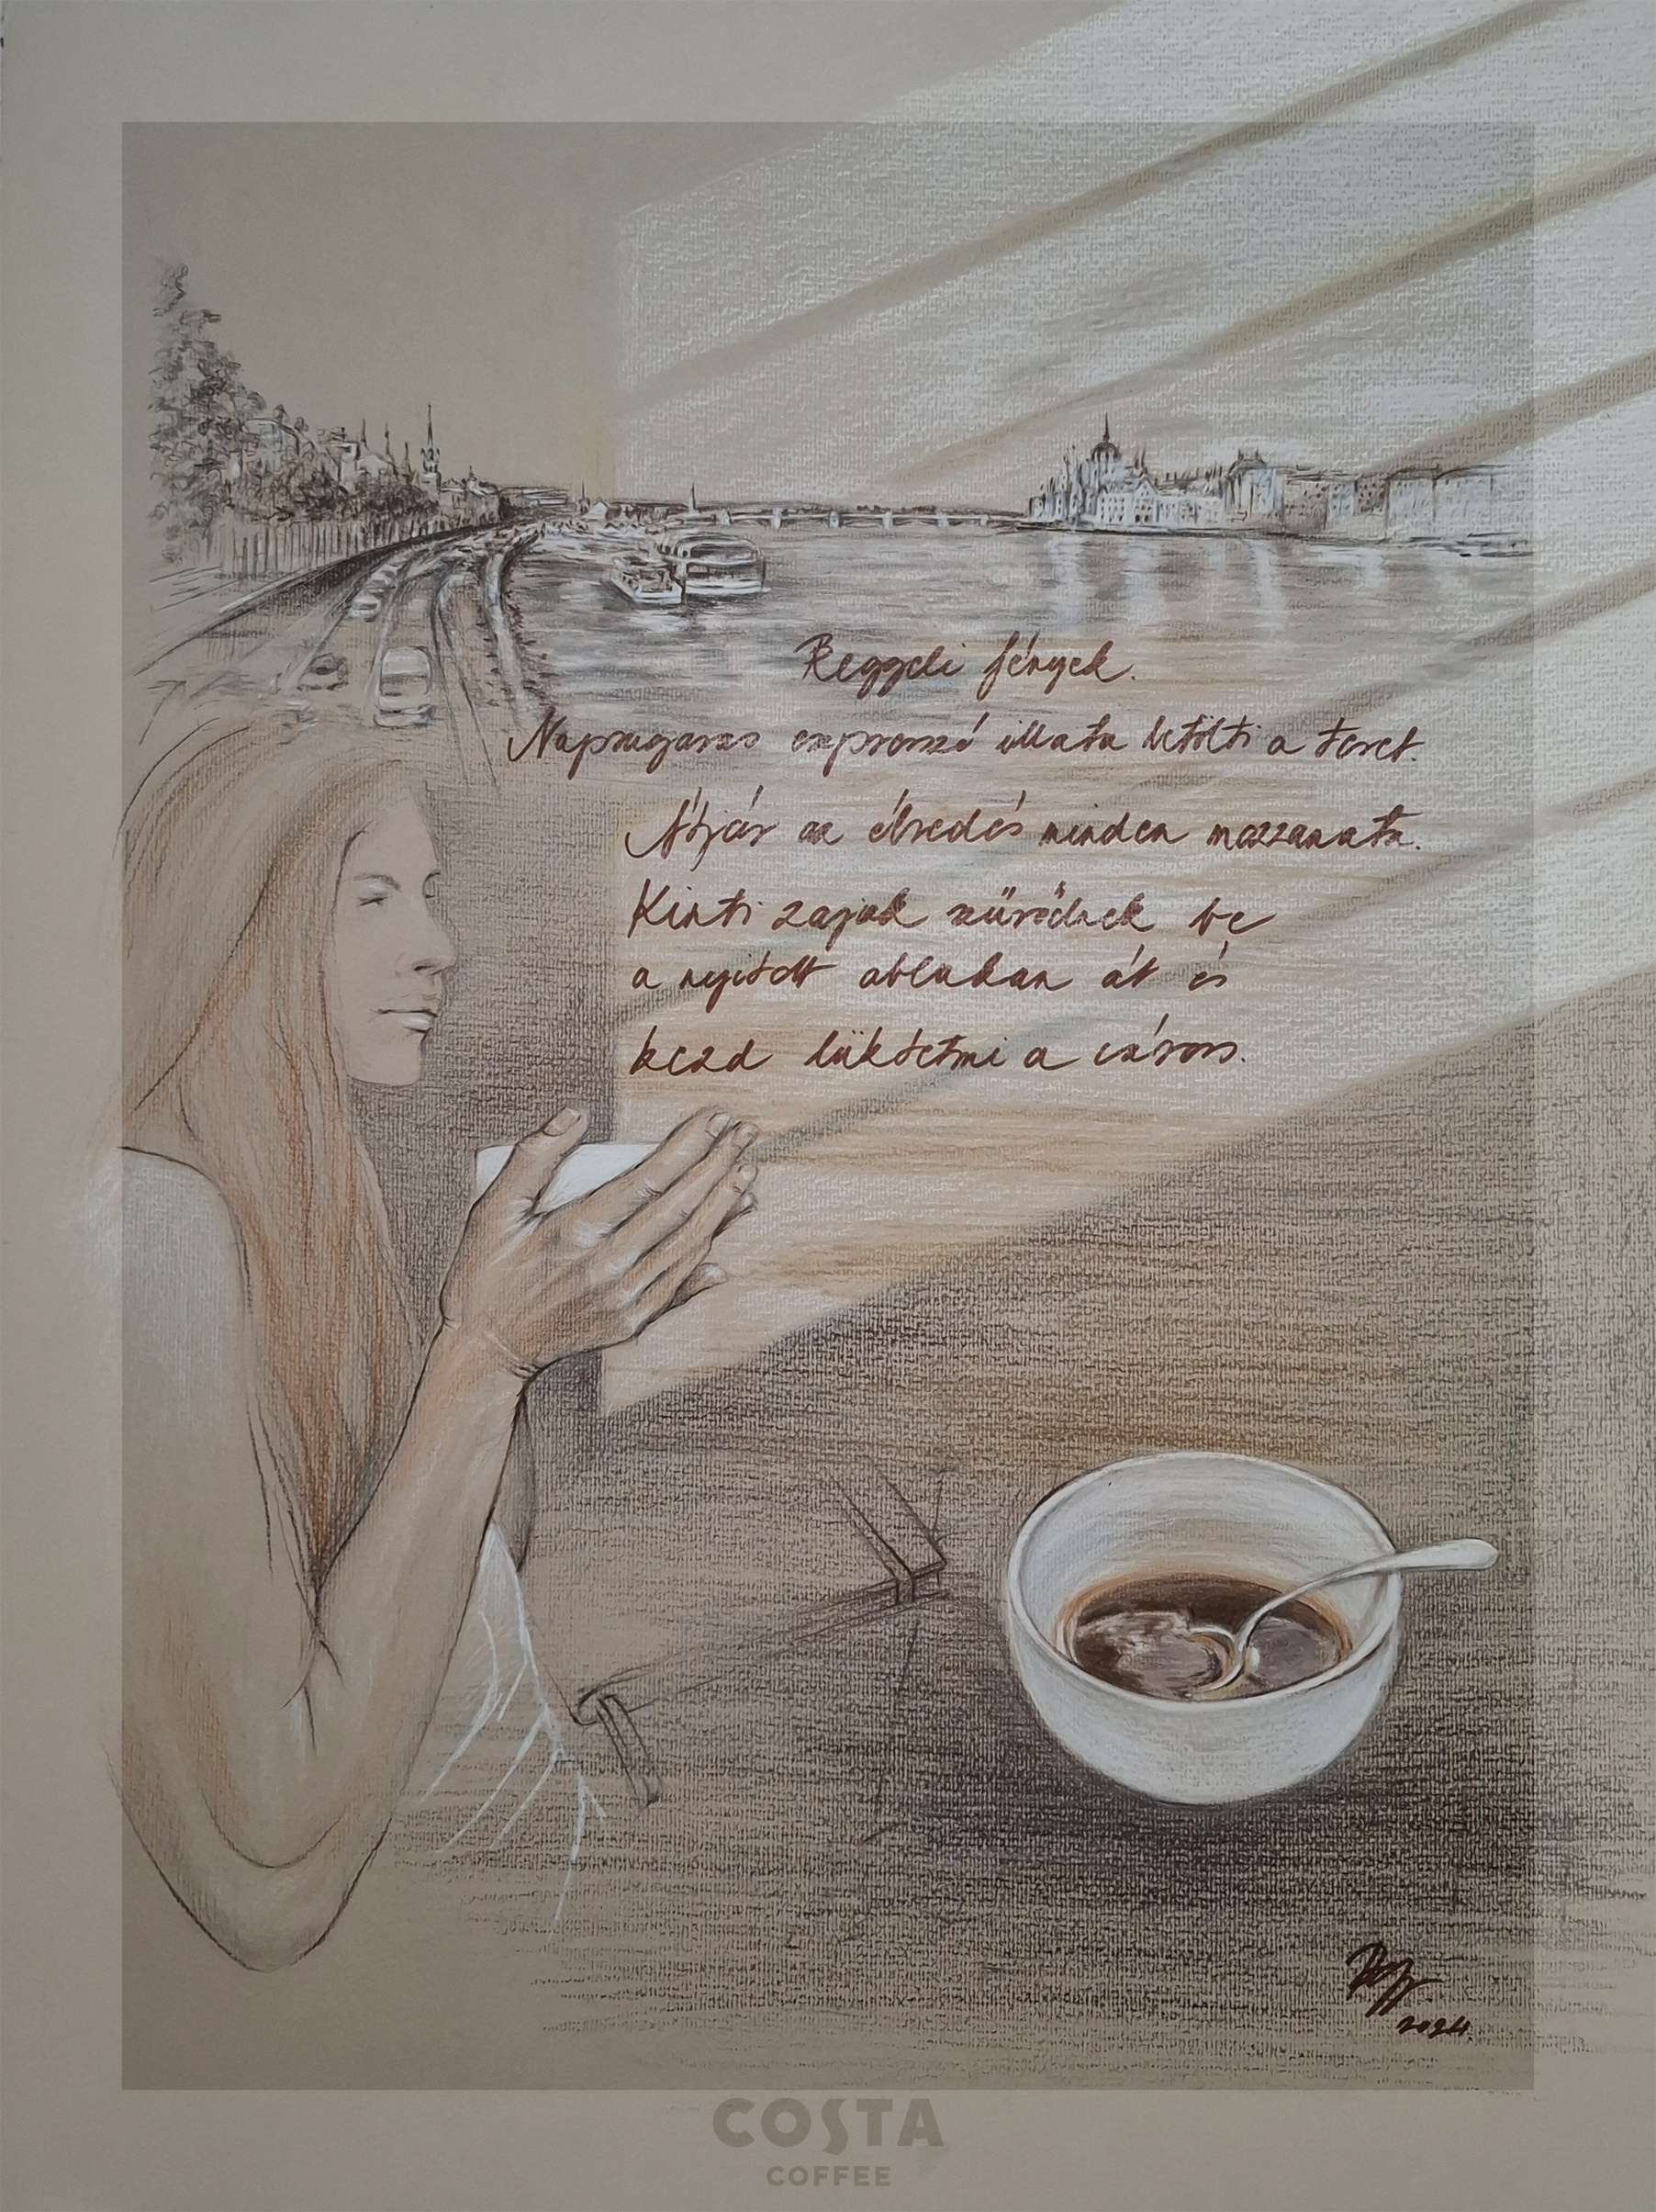 Reggeli fények.
Napsugaras expresszó illata betölti a teret.
Átjár az ébredés minden mozzanata.
Kinti zajok szűrődnek be
a nyitott ablakon át és
kezd lüktetni a város.
2024.
COSTA
COFFEE